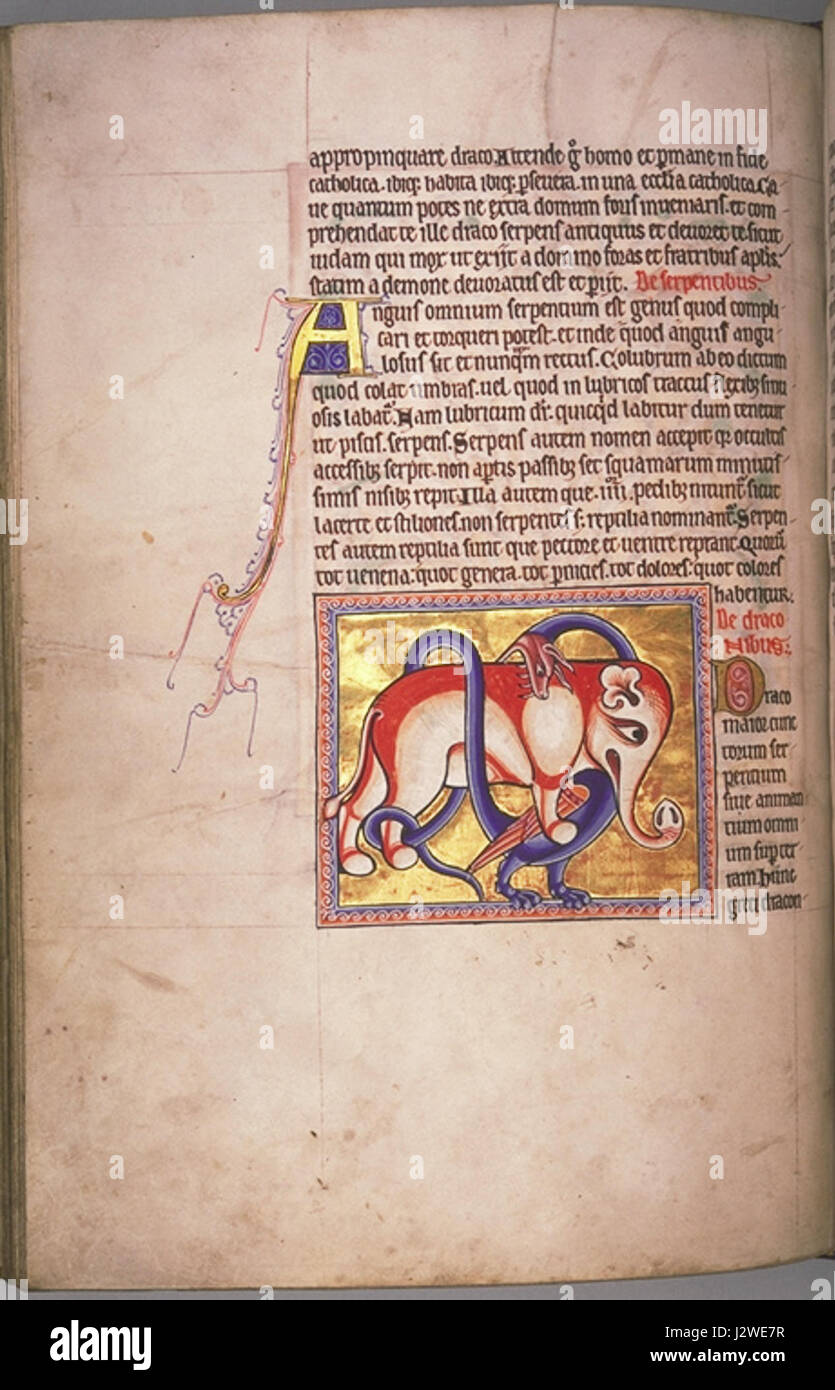 appropinquare draco. Attende g̊ homo et ꝑmane in fide
catholica. ibiqꝫ habita ibiqꝫ ꝑseuera. in una ecclia catholica. Ca-
ue quantum potes ne extra domum foris inueniaris. et com-
prehendat te ille draco serpens antiquus et deuoret te sicut
iudam qui mox ut exiit a domino foras et fratribus aplis.
statim a demone deuoratus est et ꝑiit. De serpentibus.
Anguis omnium serpentium est genus quod compli-
cari et torqueri potest. et inde quod anguis angu-
losus sit et nunqm̄ rectus. Colubrum ab eo dictum
quod colat umbras. uel quod in lubricos tractus flexibꝫ sinu
osis labat᷑. Nam lubricum dr̄. quicqid labitur dum tenetur
ut piscis. serpens. Serpens autem nomen accepit qꝛ occultis
accessibꝫ serpit. non aptis passibꝫ set squamarum minutis-
simis nisibꝫ repit. Illa autem que .iiii. pedibꝫ nitunt᷑. sicut
lacerte et stiliones. non serpentes sꝫ reptilia nominant᷑. Serpen-
tes autem reptilia sunt que pectore et uentre reptant. Quorū
tot uenena: quot genera. tot ꝑnicies. tot dolores: quot colores
habentur.
De draco
nibus.
Draco
maior cunc
torum ser-
pentium
siue animan
tium omni
um suꝑ ter-
ram. Hunc
greci dracon-
alamy
Image ID: J2WE7R
www.alamy.com